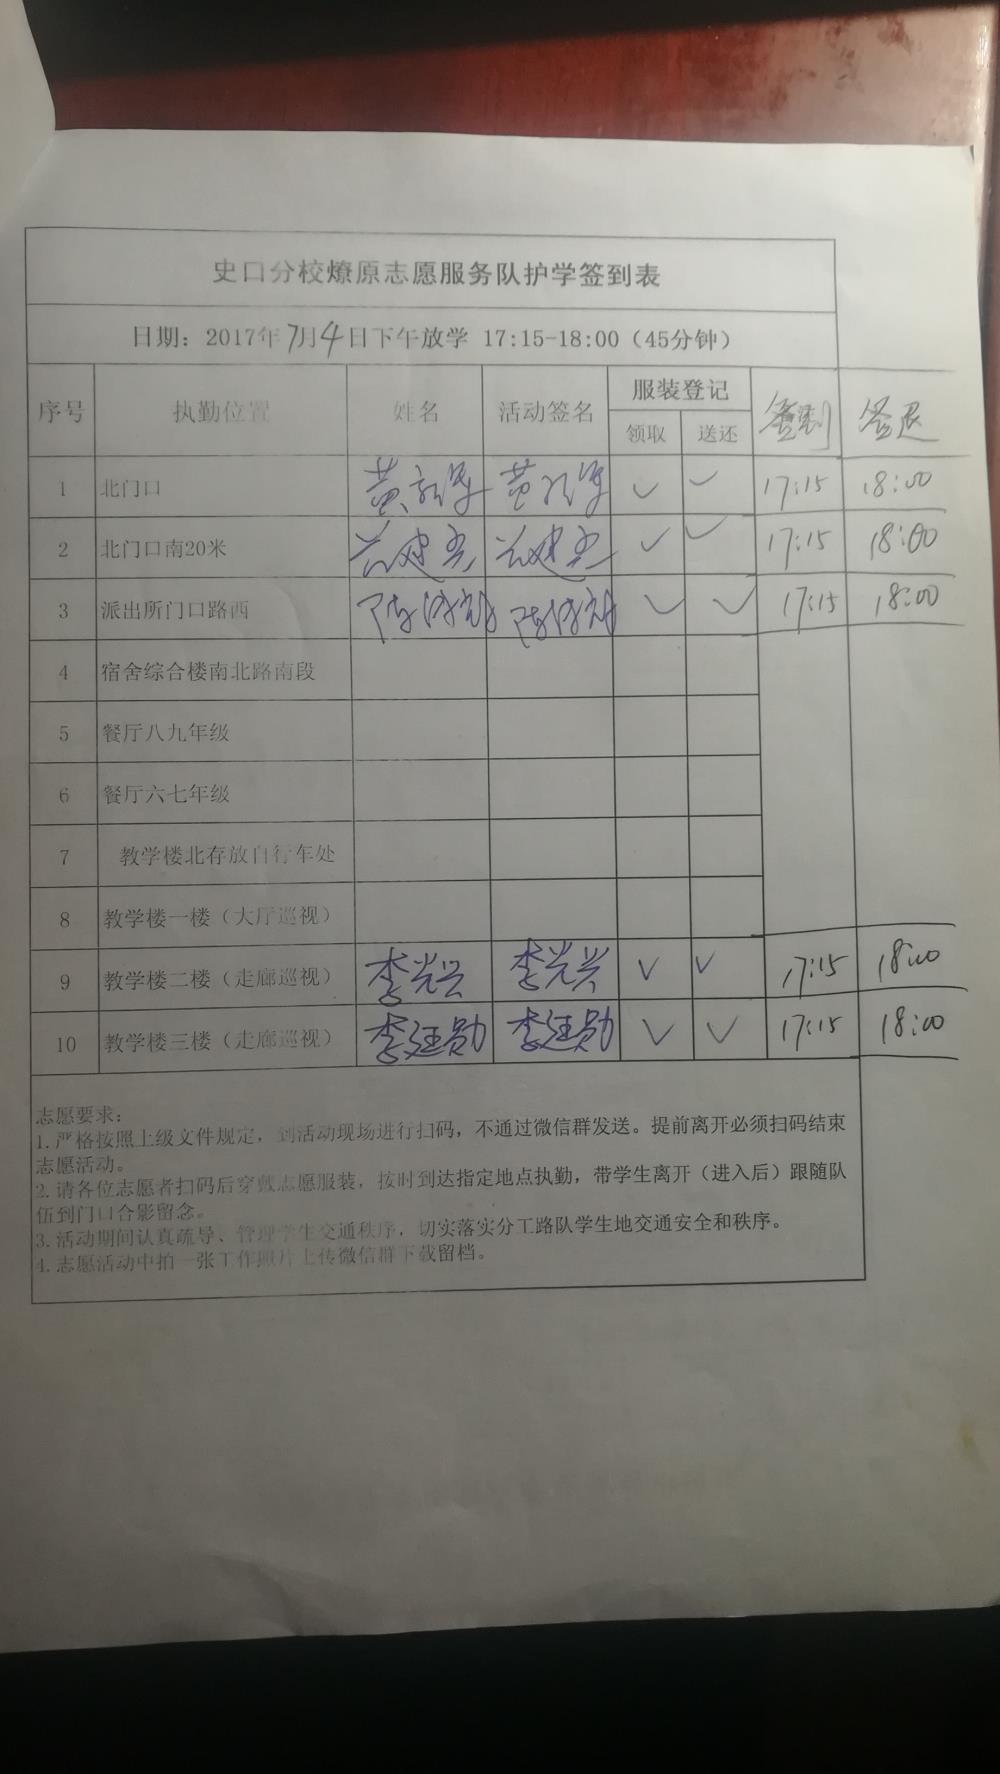 史口分校燎原志愿服务队护学签到表
日期：2017年7月4日下午放学 17:15-18:00（45分钟）
序号 执勤位置 姓名 活动签名 服装登记 签到 签退
领取 送还
1 北门口 黄 黄 ✓ ✓ 17:15 18:00
2 北门口南20米 建 建 ✓ ✓ 17:15 18:00
3 派出所门口路西 陈 陈 ✓ ✓ 17:15 18:00
4 宿舍综合楼南北路南段
5 餐厅八九年级
6 餐厅六七年级
7 教学楼北存放自行车处
8 教学楼一楼（大厅巡视）
9 教学楼二楼（走廊巡视） 李光兴 李光兴 ✓ ✓ 17:15 18:00
10 教学楼三楼（走廊巡视） 李廷勋 李廷勋 ✓ ✓ 17:15 18:00
志愿要求：
1.严格按照上级文件规定，到活动现场进行扫码，不通过微信群发送。提前离开必须扫码结束
志愿活动。
2.请各位志愿者扫码后穿戴志愿服装，按时到达指定地点执勤，带学生离开（进入后）跟随队
伍到门口合影留念。
3.活动期间认真疏导、管理学生交通秩序，切实落实分工路队学生地交通安全和秩序。
4.志愿活动中拍一张工作照片上传微信群下载留档。